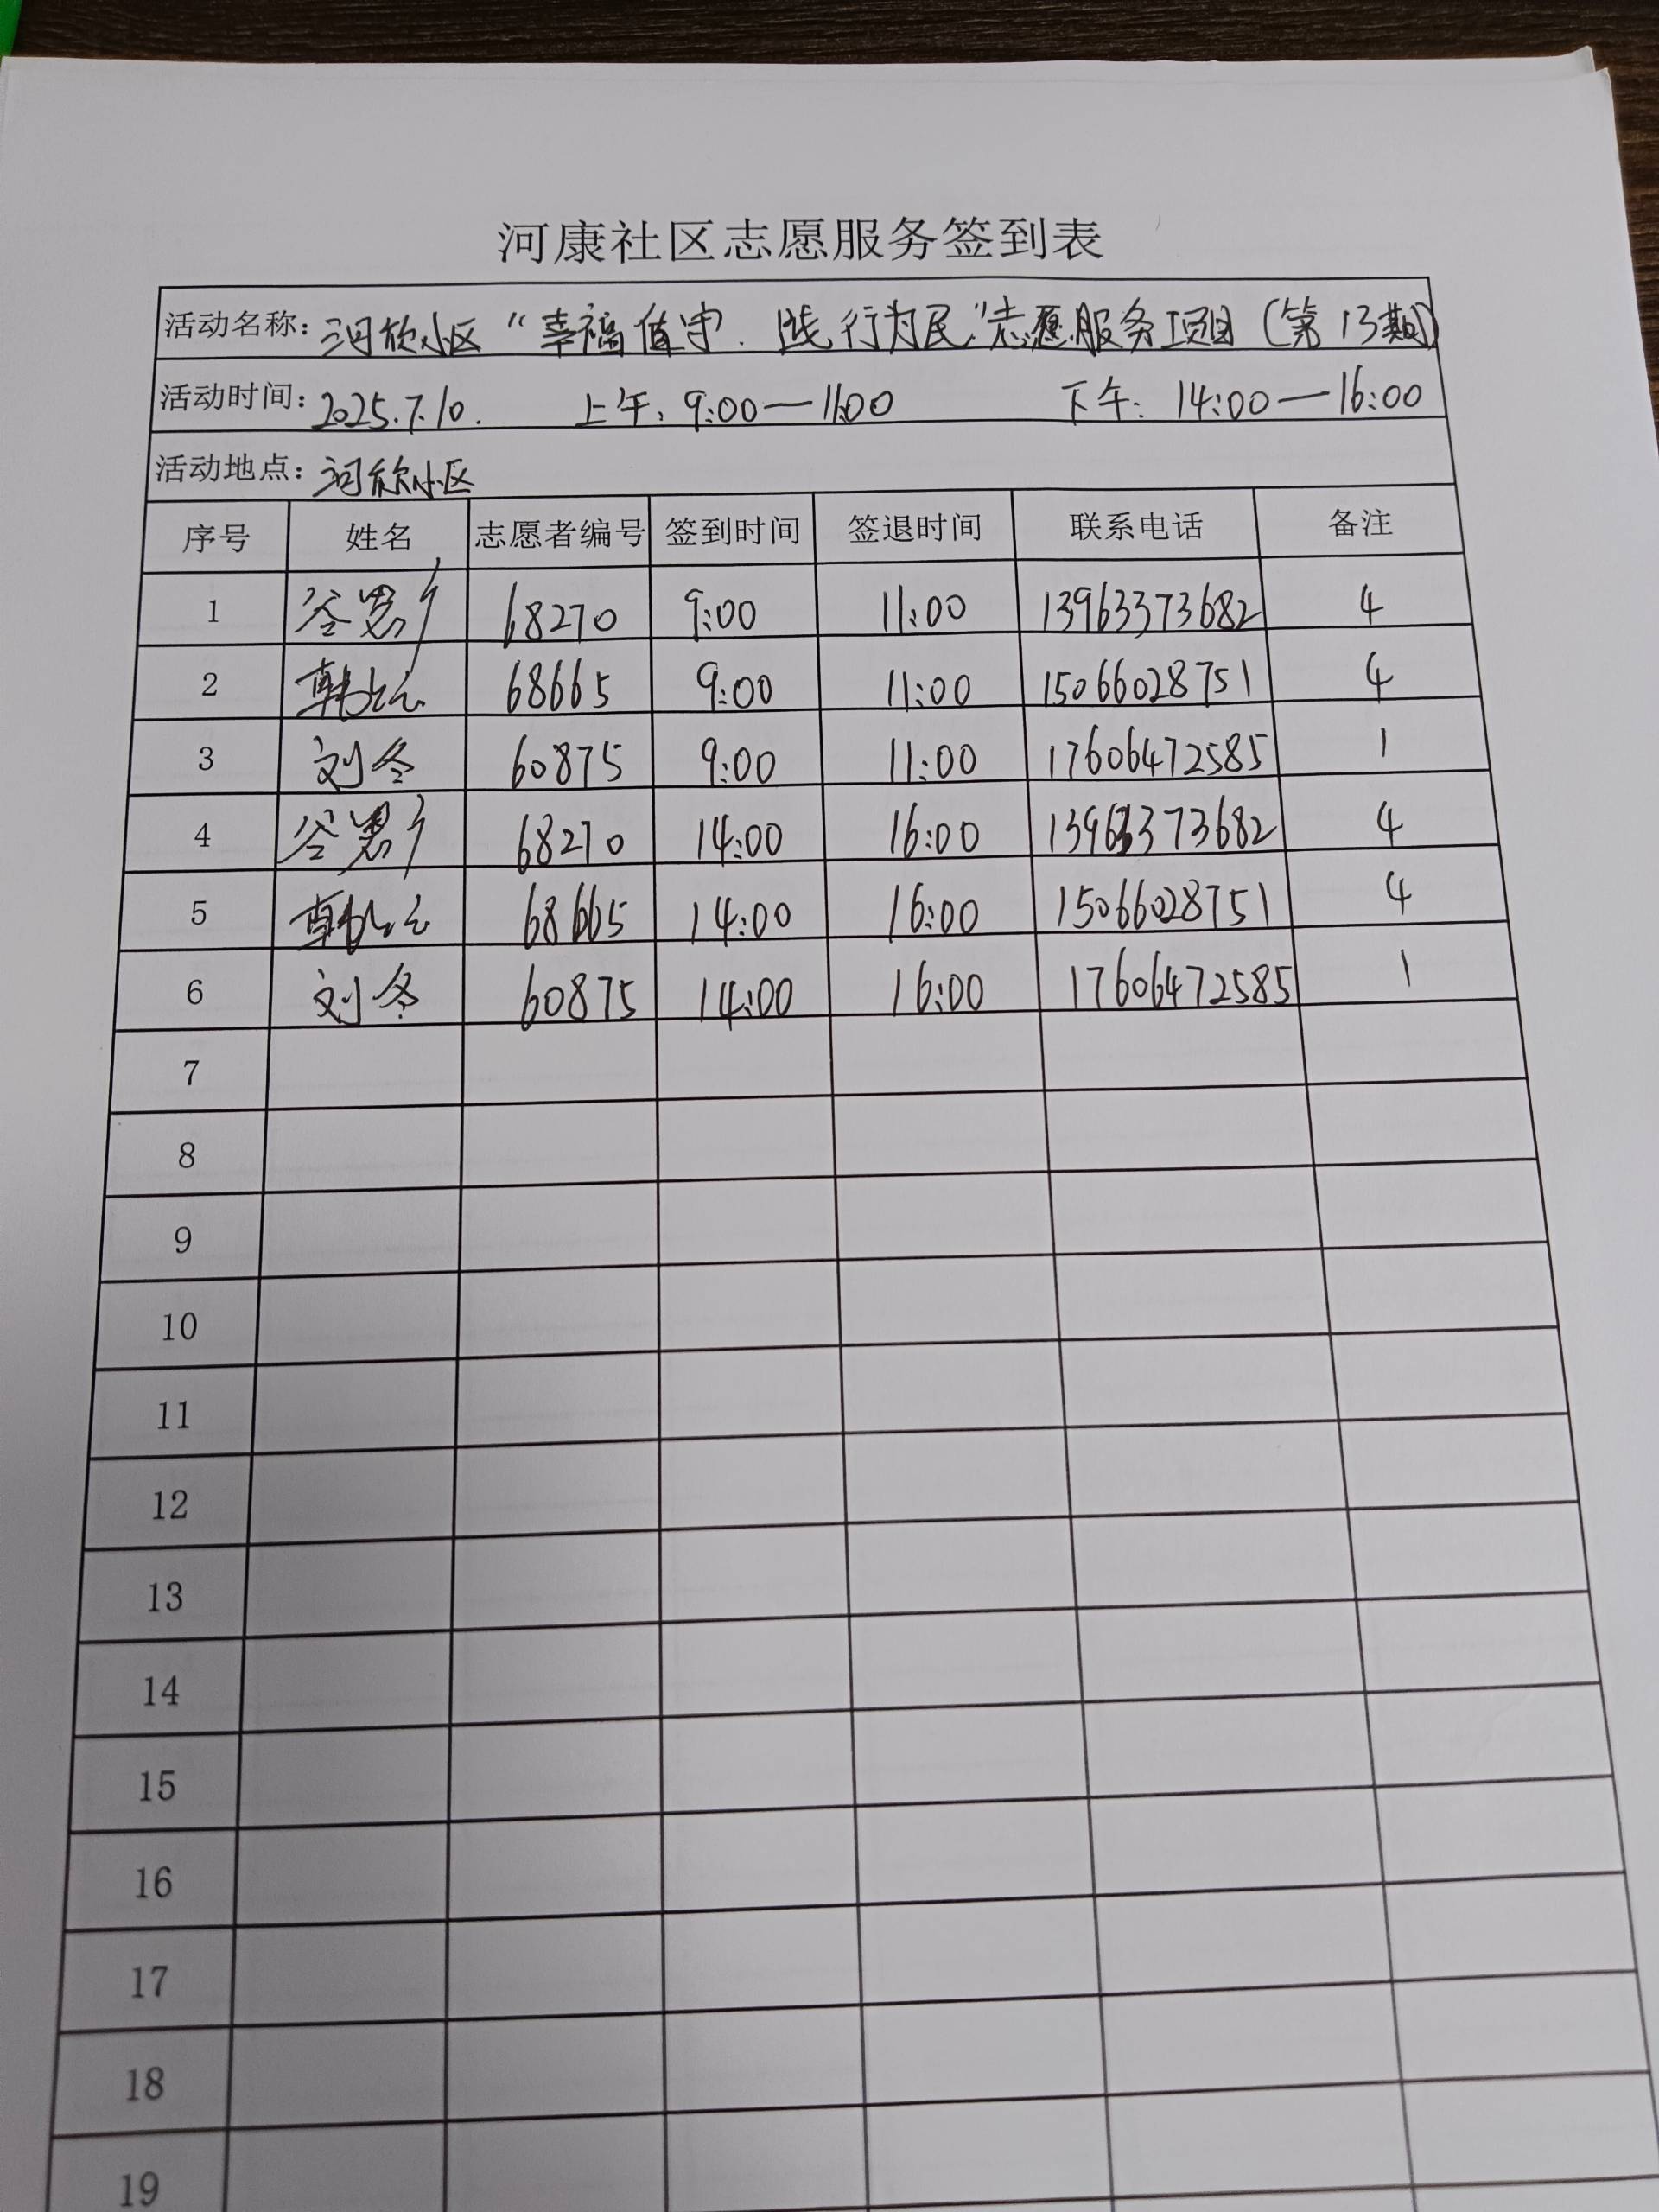 河康社区志愿服务签到表
活动名称: 河欣小区“幸福值守、践行为民”志愿服务项目(第13期)
活动时间: 2025.7.10. 上午: 9:00—11:00 下午: 14:00—16:00
活动地点: 河欣小区
序号 姓名 志愿者编号 签到时间 签退时间 联系电话 备注
1 68270 9:00 11:00 13963373682 4
2 68665 9:00 11:00 15066028751 4
3 刘冬 60875 9:00 11:00 17606472585 1
4 68270 14:00 16:00 13963373682 4
5 68665 14:00 16:00 15066028751 4
6 刘冬 60875 14:00 16:00 17606472585 1
7
8
9
10
11
12
13
14
15
16
17
18
19